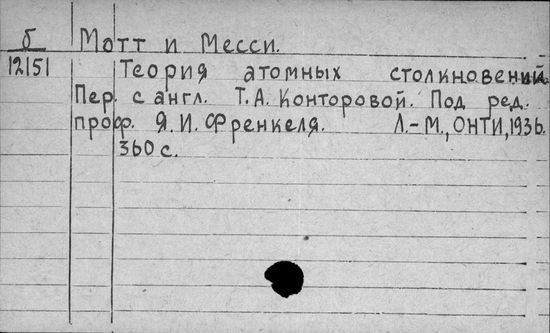 б Мотт и Месси.
12151 Теория атомных столкновений.
Пер. с англ. Т.А. Конторовой. Под ред.
проф. Я.И. Френкеля. Л.-М., ОНТИ, 1936.
360 с.